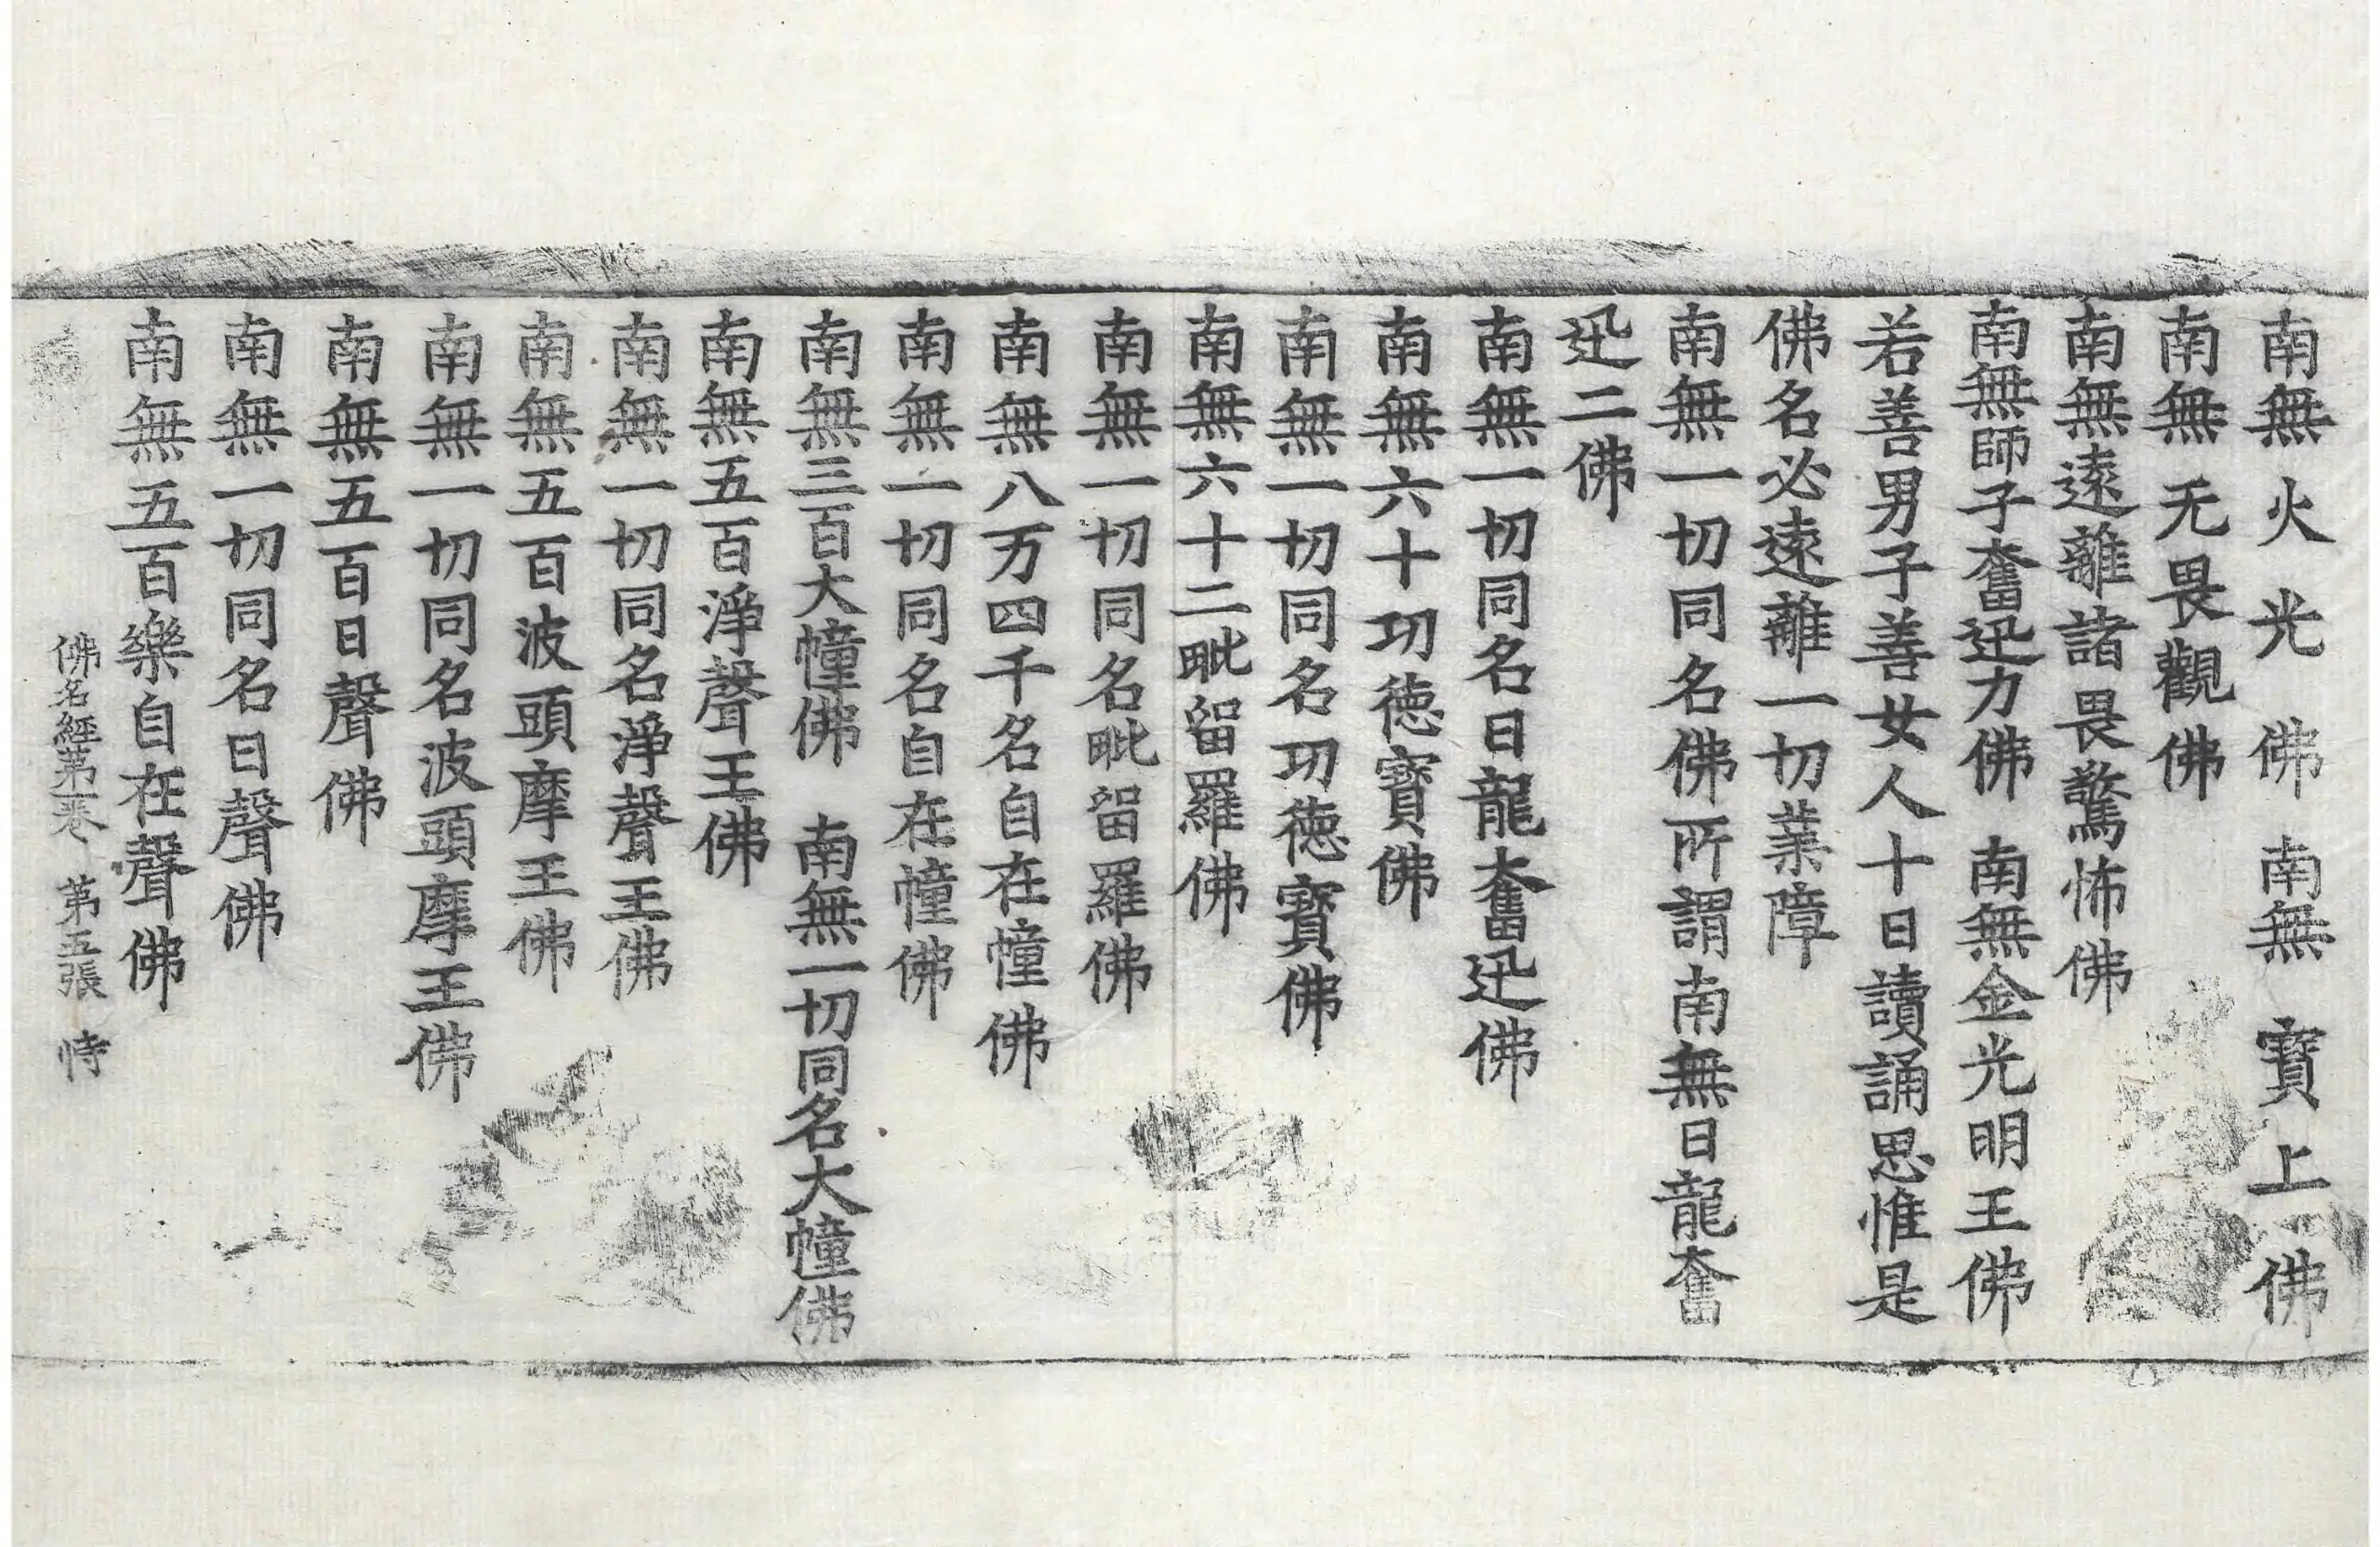 南無火光佛　南無寶上佛
南無无畏觀佛
南無遠離諸畏驚怖佛
南無師子奮迅力佛　南無金光明王佛
若善男子善女人十日讀誦思惟是
佛名必遠離一切業障
南無一切同名佛所謂南無日龍奮
迅二佛
南無一切同名日龍奮迅佛
南無六十功德寶佛
南無一切同名功德寶佛
南無六十二毗留羅佛
南無一切同名毗留羅佛
南無八万四千名自在幢佛
南無一切同名自在幢佛
南無三百大幢佛　南無一切同名大幢佛
南無五百淨聲王佛
南無一切同名淨聲王佛
南無五百波頭摩王佛
南無一切同名波頭摩王佛
南無五百日聲佛
南無一切同名日聲佛
南無五百樂自在聲佛
佛名經第一卷　第五張　恃